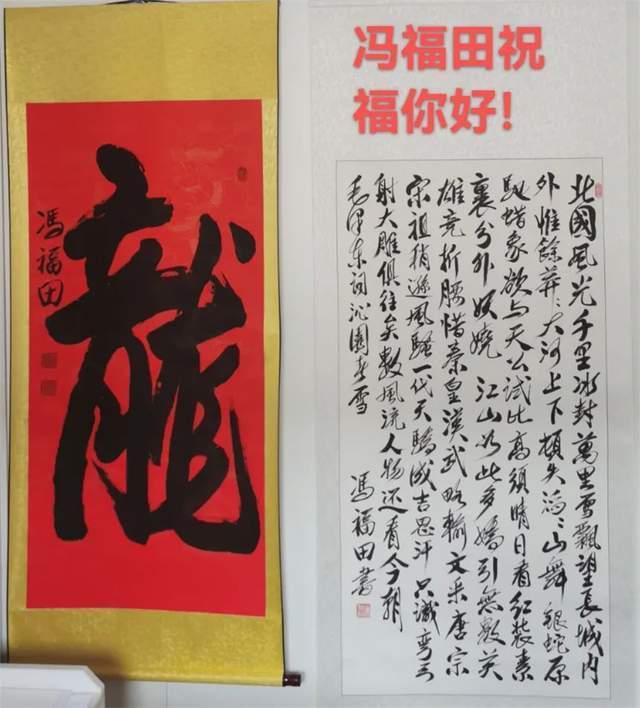 冯福田祝
福你好!
龍
馮福田
北國風光千里冰封萬里雪飄望長城内
外惟餘莽〻大河上下頓失滔〻山舞銀蛇原
馳蜡象欲与天公试比高須晴日看红装素
裹分外妖娆江山如此多嬌引無數英
雄竞折腰惜秦皇漢武略輸文采唐宗
宋祖稍遜風騷一代天驕成吉思汗只識弯弓
射大雕俱往矣數風流人物还看今朝
毛泽东词沁園春雪
馮福田書